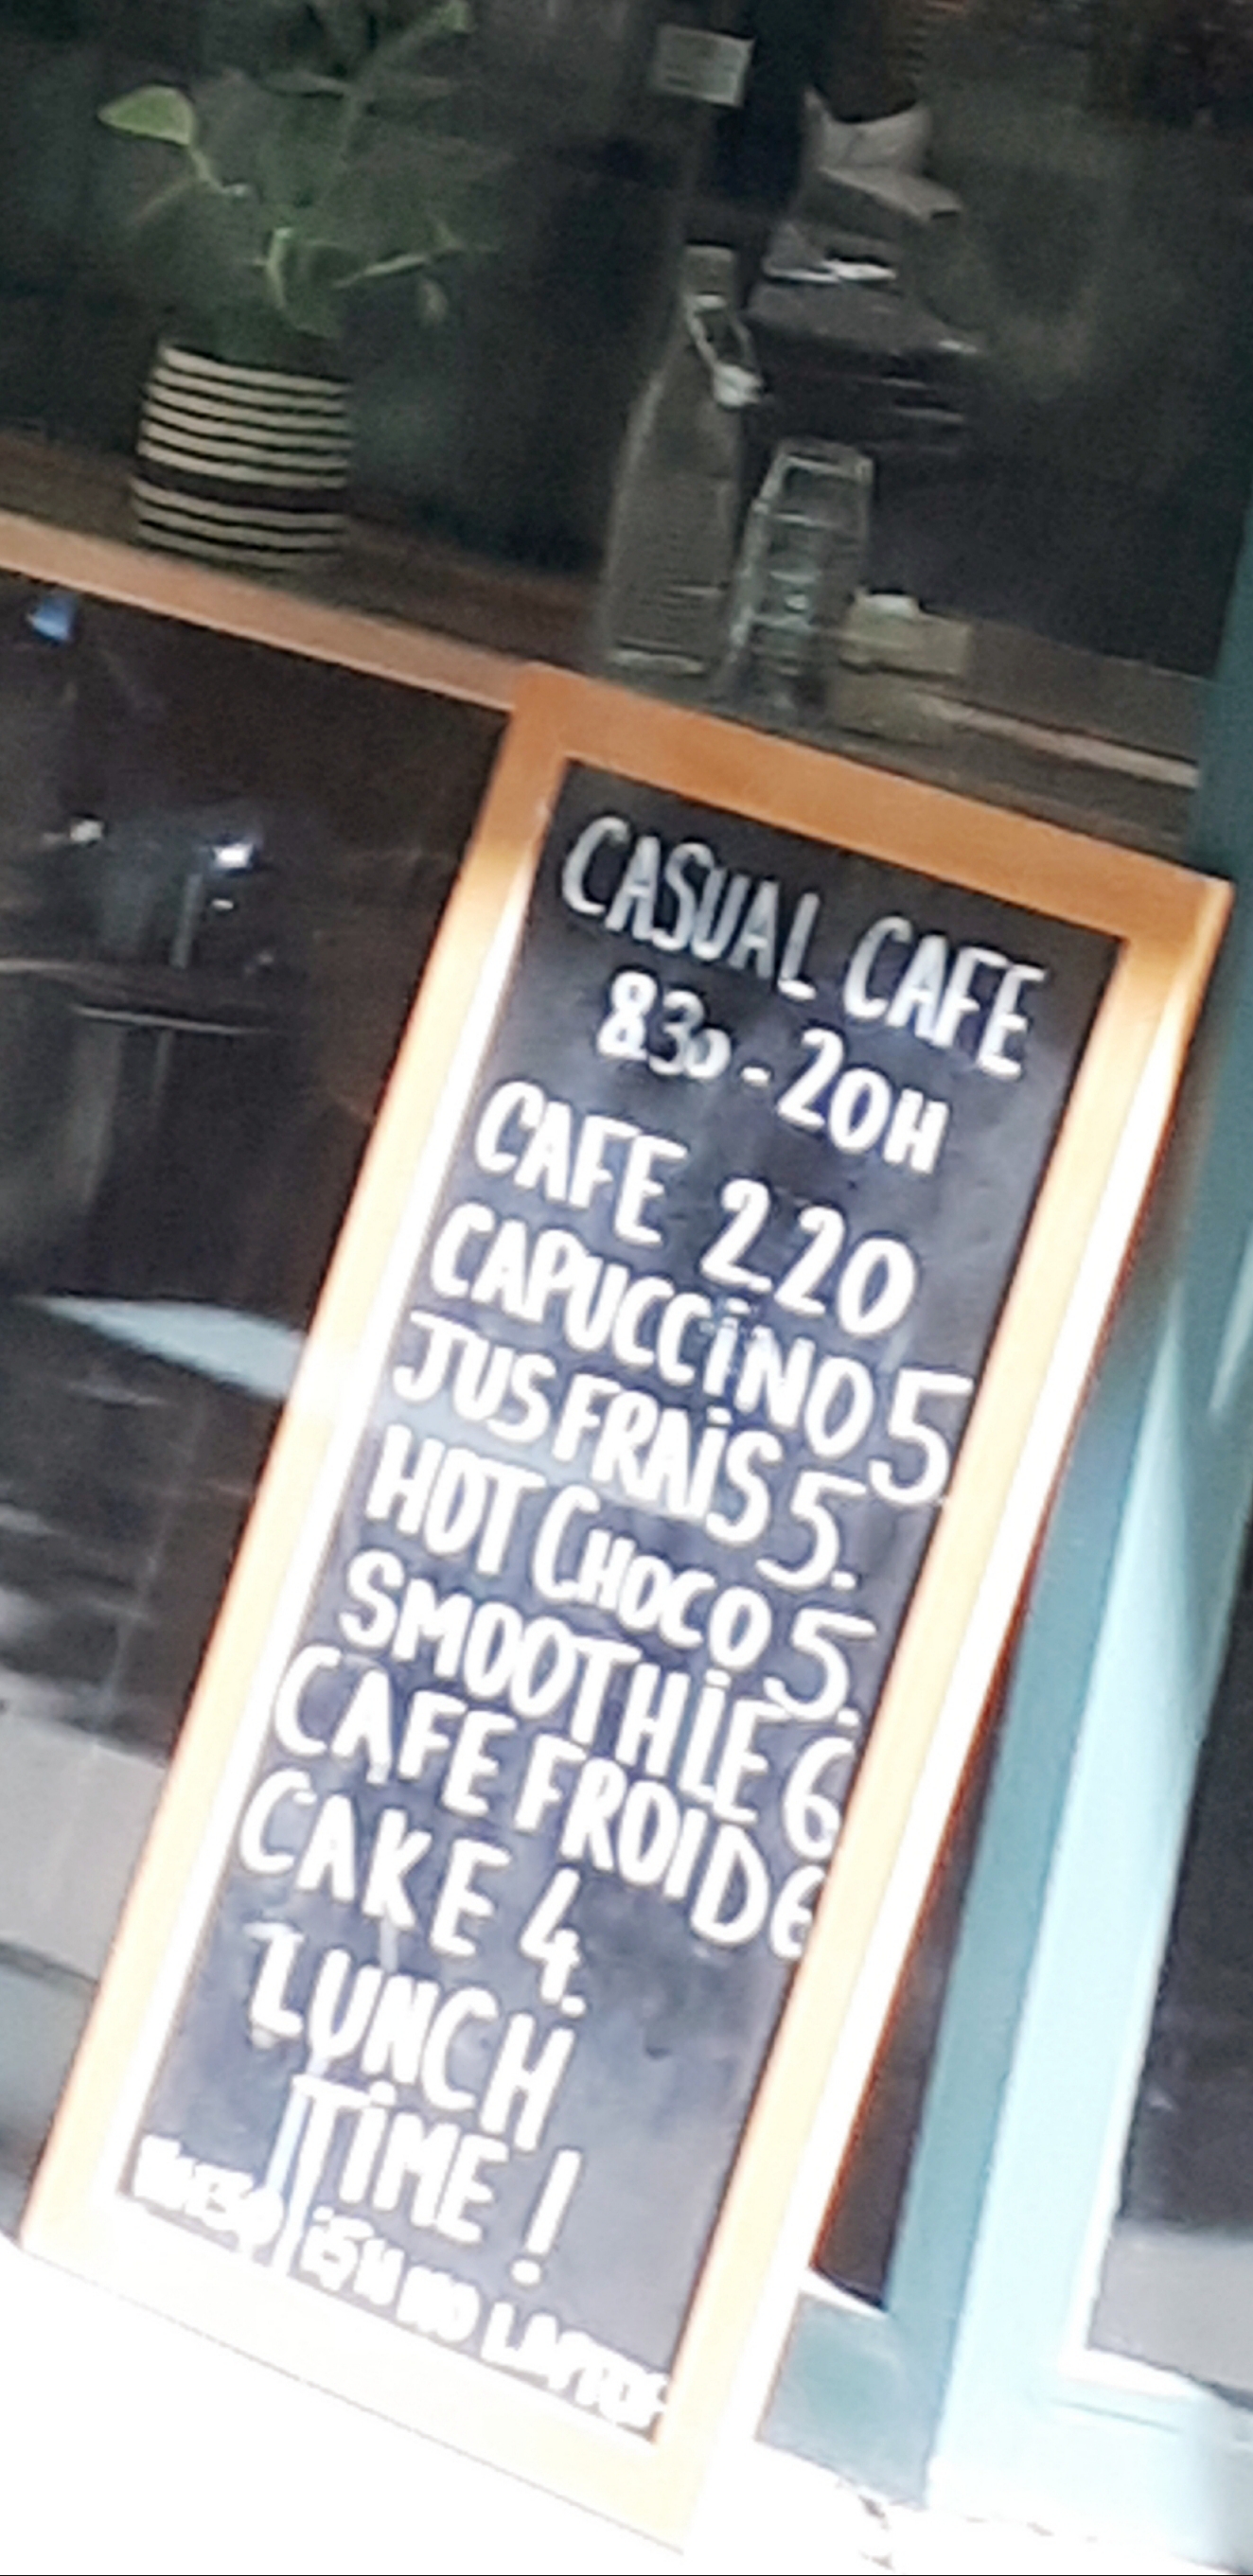 CASUAL CAFE
830 - 20H
CAFE 2.20
CAPUCCINO 5.
JUS FRAIS 5.
HOT CHOCO 5.
SMOOTHIE 6
CAFE FROID 6
CAKE 4.
LUNCH
TIME !
15H NO LAPTOP